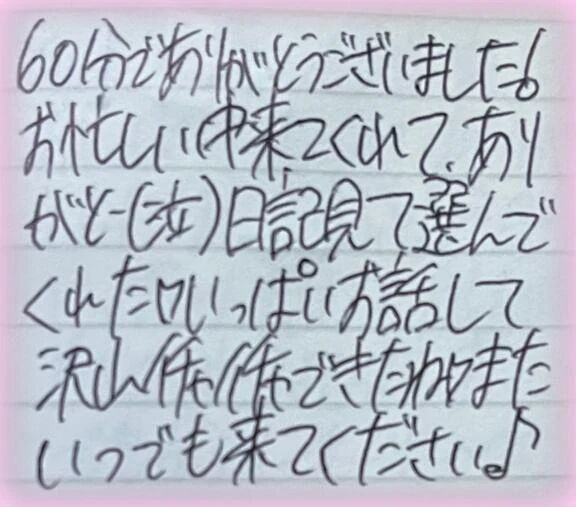 60分でありがとうございました。
お忙しい中来てくれて、あり
がと-(泣)日記見て選んで
くれたりいっぱいお話して
沢山イチャイチャできたねりまた
いつでも来てください♪